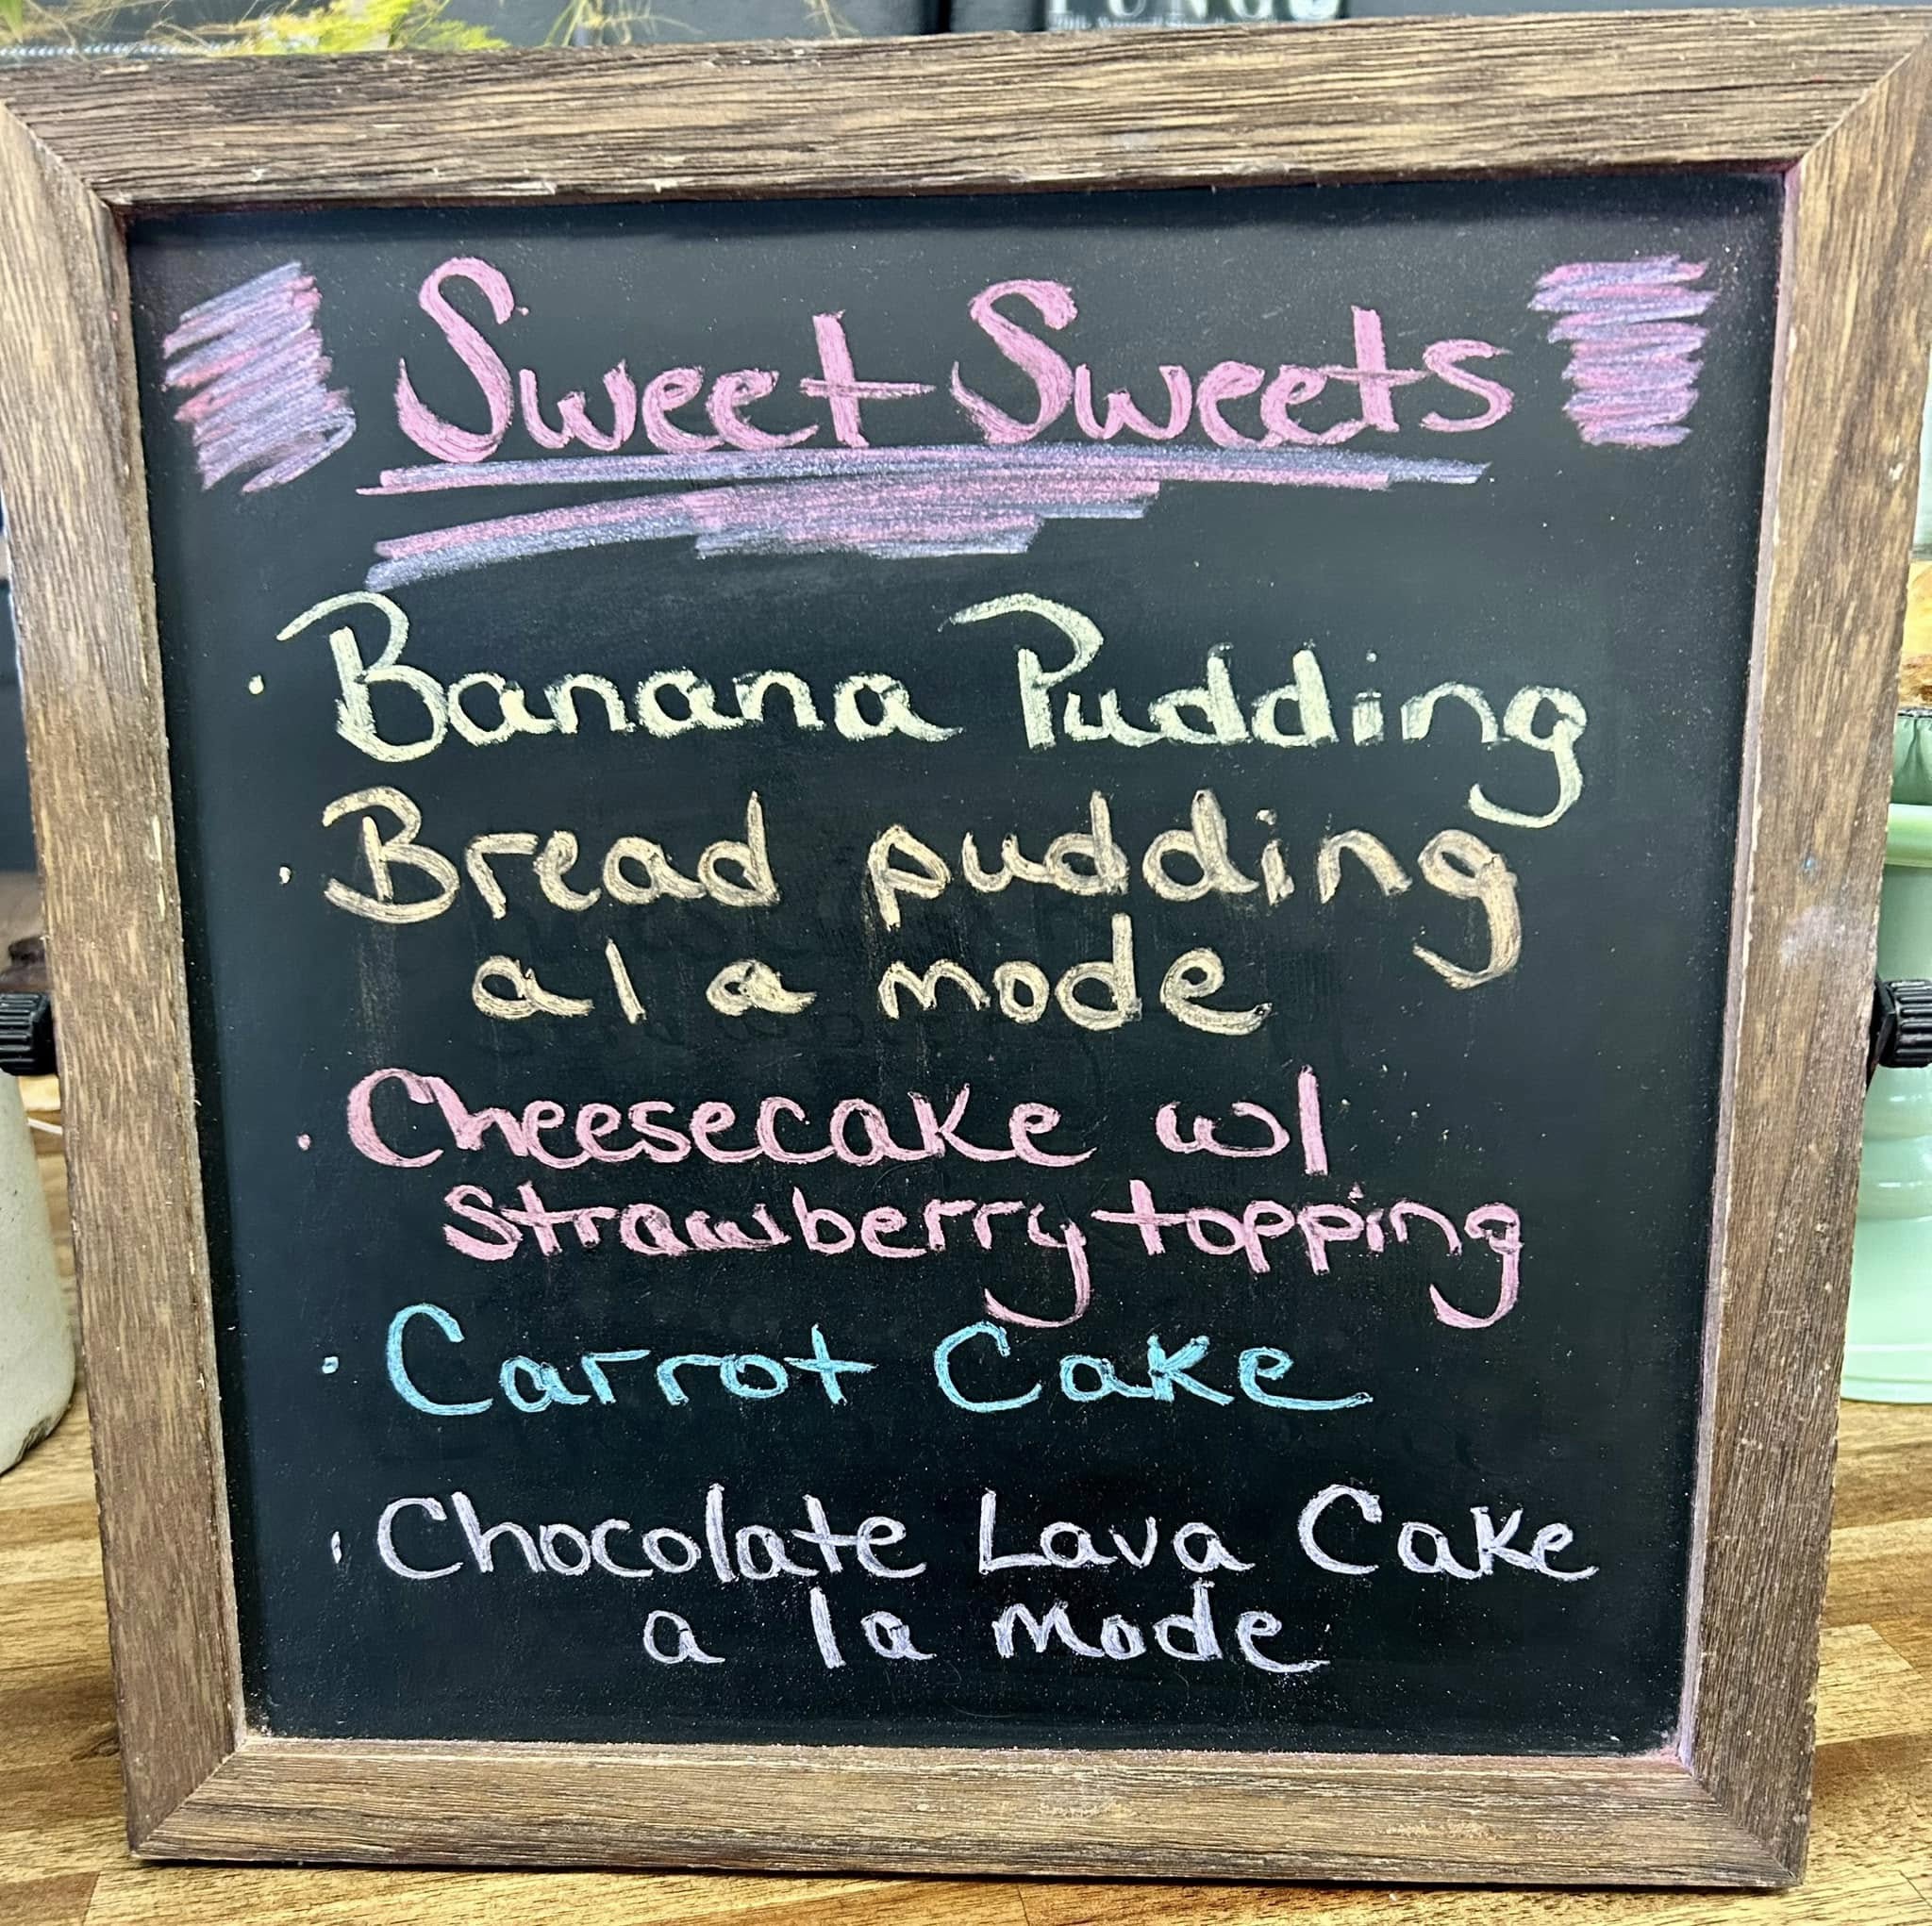 Sweet Sweets
· Banana Pudding
· Bread pudding
a l a mode
· Cheesecake w/
Strawberry topping
· Carrot Cake
· Chocolate Lava Cake
a la mode